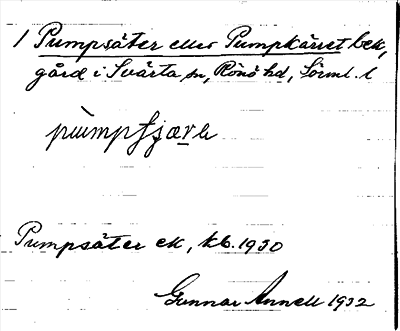 1 Pumpsäter eller Pumpkärret bek,
gård i Svärta sn, Rönö hd, Sörml. l
Pumpsäter ek, kb. 1930
Gunnar Annell 1932